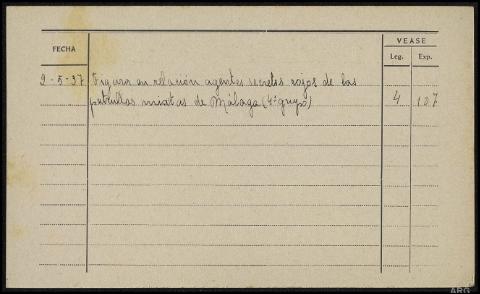 FECHA
VEASE
Leg. Exp.
9-5-37 Figura en relación agentes secretos rojos de las
patrullas mixtas de Málaga (4º grupo) 4 107
ARG